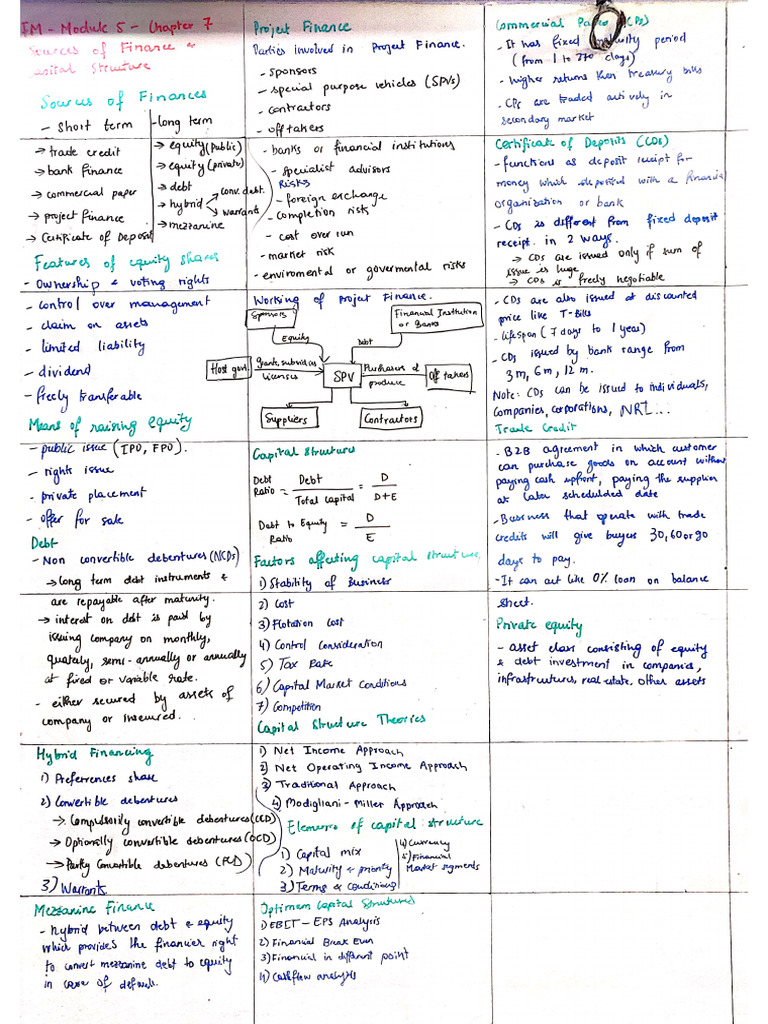 FM - Module 5 - Chapter 7
Sources of Finance &
Capital Structure
Sources of Finances
- short term
→ trade credit
→ bank finance
→ commercial paper
→ project finance
→ Certificate of Deposit
- long term
→ equity (public)
→ equity (private)
→ debt
→ hybrid
conv. debt.
warrants
→ mezzanine
Features of equity shares
- Ownership & voting rights
- control over management
- claim on assets
- limited liability
- dividend
- freely transferable
Means of raising equity
- public issue (IPO, FPO).
- rights issue
- private placement
- offer for sale
Debt
- Non convertible debentures (NCDs)
→ long term debt instruments &
are repayable after maturity.
→ interest on debt is paid by
issuing company on monthly,
quataly, semi-annually or annually
at fixed or variable rate.
- either secured by assets of
company or insecured.
Hybrid Financing
1) Preferrences share
2) Convertible debentures
→ Compulsorily convertible debentures (CCD)
→ Optionally convertible debentures (OCD)
→ Partly Convertible debentures (PCD)
3) Warrants
Mezzanine Finance
- hybrid between debt & equity
which provides the financier right
to convert mezzanine debt to equity
in case of default.
Project Finance
Parties involved in Project Finance.
- sponsors
- special purpose vehicles (SPVs)
- contractors
- off takers
- banks or financial institutions
- specialist advisors
Risks
- foreign exchange
- completion risk
- cost over run
- market risk
- enviromental or govermental risks
Working of Project Finance.
Sponsors
Financial Institution
or Banks
Equity
Debt
Host govt.
grants, subsidies
licenses
SPV
Purchases of
produce
Off takers
Suppliers
Contractors
Capital Structures
Debt Ratio = Debt / Total Capital = D / D+E
Debt to Equity Ratio = D / E
Factors affecting capital structure,
1) Stability of Business
2) Cost
3) Flotation Cost
4) Control Consideration
5) Tax Rate
6) Capital Market Conditions
7) Competition
Capital Structure Theories
1) Net Income Approach
2) Net Operating Income Approach
3) Traditional Approach
4) Modigliani-Miller Approach
Elements of capital structure
1) Capital mix
2) Maturity & priority
3) Terms & Conditions
4) Currency
5) Financial
Market segments
Optimum Capital Structures
1) EBIT - EPS Analysis
2) Financial Break Even
3) Financial in different point
4) Cashflow analysis
Commercial Paper (CPs)
- It has fixed maturity period
(from 1 to 270 days)
- higher returns then treasury bills
- CPs are traded actively in
secondary market
Certificate of Deposits (CDs)
- functions as deposit receipt for
money which deposited with a financial
organization or bank
- CDs is different from fixed deposit
receipt. in 2 ways.
→ CDs are issued only if sum of
issue is huge
→ CDs is freely negotiable
- CDs are also issued at discounted
price like T-Bills
- lifespan (7 days to 1 year)
- CDs issued by bank range from
3m, 6m, 12 m.
Note: CDs can be issued to individuals,
companies, corporations, NRI...
Trade Credit
- B2B agreement in which customer
can purchase goods on account without
paying cash upfront, paying the supplier
at later schedulded date
- Business that operate with trade
credits will give buyers 30, 60 or 90
days to pay.
- It can act like 0% loan on balance
sheet.
Private equity
- asset class consisting of equity
& debt investment in companies,
infrastrutures, real estate, other assets